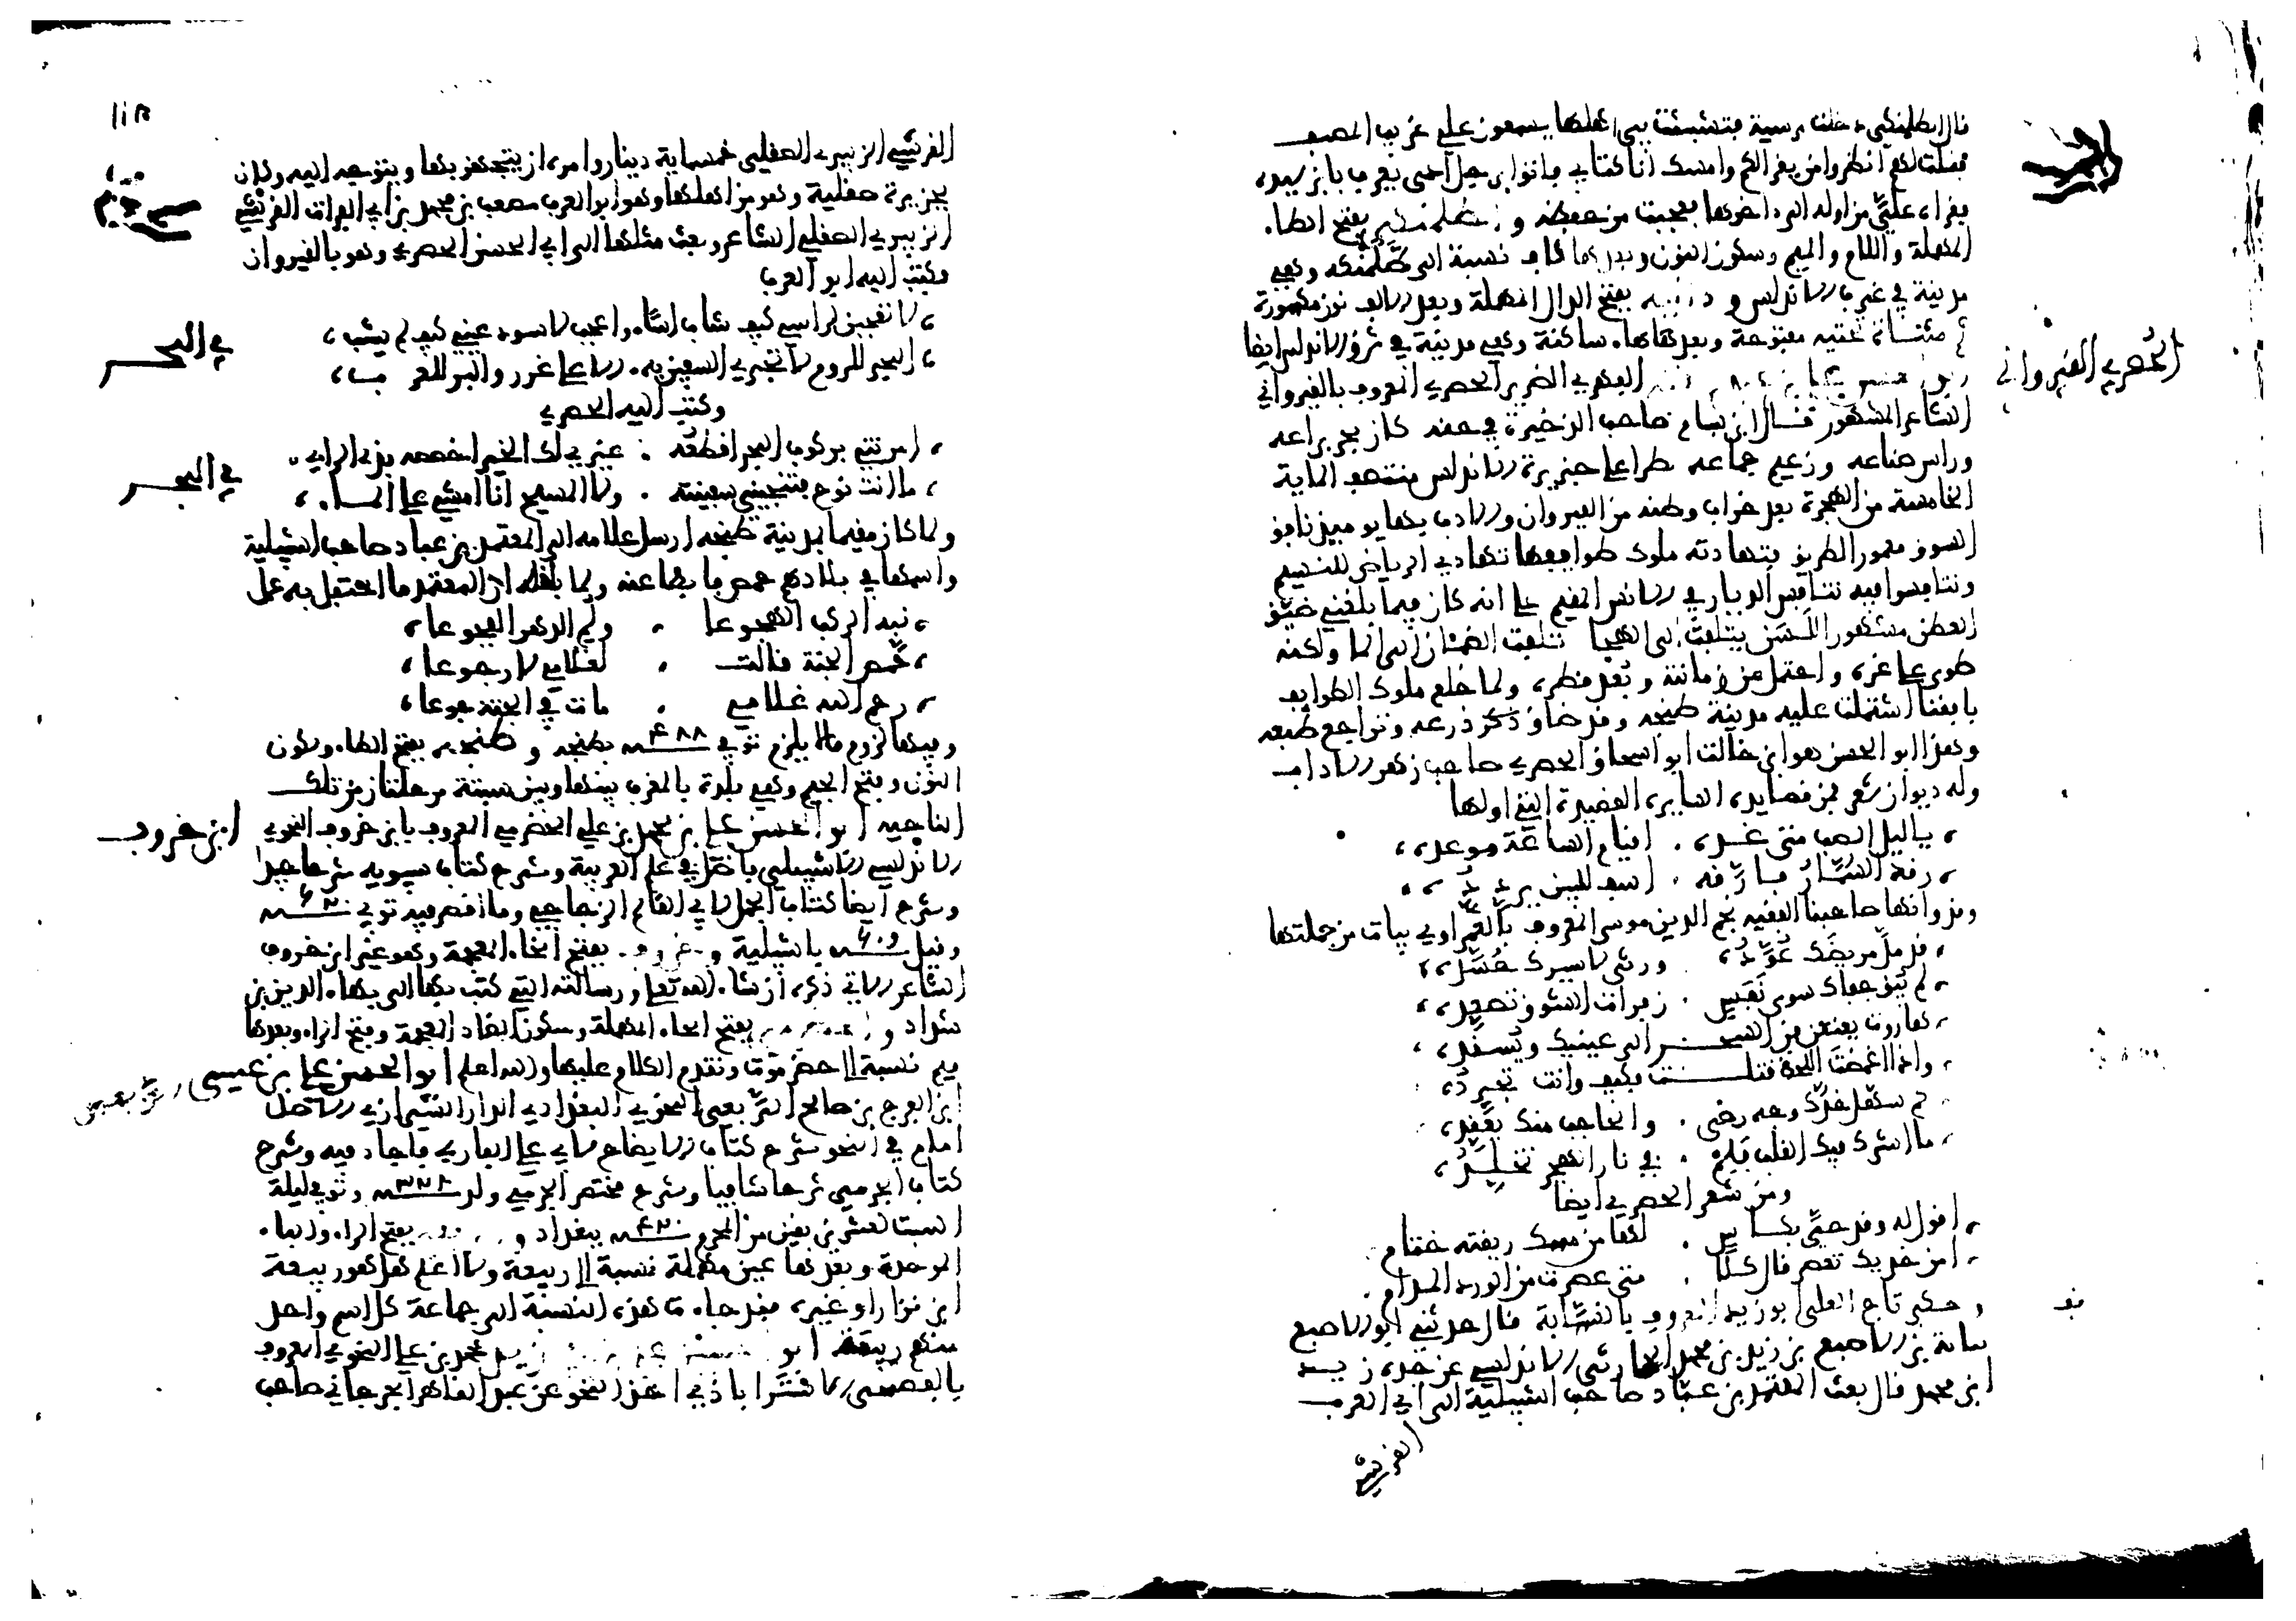 قال الطلمنكي دخلت مرسية فتشبثت بي اهلها يسمعون علي غريب المصنف
فقلت لهم انظروا من يقرا لكم وامسك انا كتابي فاتوا برجل اعمى يعرف بابن سيده
يقراه علي من اوله الى اخره فعجبت من حفظه و الطلمنكي بفتح الطاء
المهملة واللام والميم وسكون النون وبعدها كاف نسبة الى طلمنكه وهي
مدينة في غرب الاندلس و دانيه بفتح الدال المهملة وبعد الالف نون مكسورة
ثم مثناة تحتية مفتوحة وبعدها هاء ساكنة وهي مدينة في شرق الاندلس ايضا
الحصري القيرواني
الفهري الضرير الحصري المعروف بالقيرواني
الشاعر المشهور قال ابن بسام صاحب الذخيرة في حقه كان بحر براعه
وراس صناعه وزعيم جماعه طرا على جزيرة الاندلس منتصف الماية
الخامسة من الهجرة بعد خراب وطنه من القيروان والادب بها يوميذ نافق
السوق معمور الطريق فتهادته ملوك طوايفها تهادي الرياض للنسيم
وتنافسوا فيه تنافس الديار في الانس المقيم على انه كان فيما بلغني ضيق
العطن مشهور اللسن يتلفت الى الهجا تلفت الضمان الى الما ولكنه
طوي على غره واحتمل بين زمانته وبعد قطره ولما خلع ملوك الطوايف
بافقنا اشتملت عليه مدينة طنجه وقد ضاق ذرعه وتراجع طبعه
وهذا ابو الحسن هو ابن خالت ابو اسحاق الحصري صاحب زهر الاداب
وله ديوان شعر فمن قصايده السايرة القصيدة التي اولها
يا ليل الصب متى غده . اقيام الساعة موعده
رقد السمار فارقه . اسف للبين يردده
ومن وازنها صاحبنا الفقيه نجم الدين موسى المعروف بالقمراوي بيات من جملتها
قد مل مريضك عوده . ورثى لاسيرك حسده
لم يبق جفاك سوى نفس . زفرات الشوق تصعده
هاروت يعنعن فن السحر الى عينيك ويسنده
واذا اغمضت اللحظ فتكت فكيف وانت تجرده
كم سهل خدك وجه رضى . والحاجب منك يعقده
ما اشرك فيك القلب فلم . في نار الهجر تخلده
ومن شعر الحصري ايضا
اقول له وقد حيى بكاس . لها من مسك ريقته ختام
امن خديك تعصر قال كلا . متى عصرت من الورد المدام
وحكى تاج العلى ابو زيد المعروف بالنسابة قال حدثني ابو الاصبغ
نباتة بن الاصبغ بن زيد بن محمد الحارثي الاندلسي عن جده زيد
ابن محمد قال بعث المعتمد بن عباد صاحب اشبيلية الى ابي العرب
القرشي
القرشي الزبيري الصقلي خمسماية دينار وامره ان يتجهز بها ويتوجه اليه وكان
بجزيرة صقلية وهو من اهلها وهو ابو العرب مصعب بن محمد بن ابي الفرات القرشي
الزبيري الصقلي الشاعر وبعث مثلها الى ابي الحسن الحصري وهو بالقيروان
فكتب اليه ابو العرب
لا تعجبن لراسي كيف شاب اسا. واعجب لاسود عيني كيف لم يشب
في البحر
البحر للروم لا تجري السفين به. الا على غرر والبر للعرب
وكتب اليه الحصري
امرتني بركوب البحر اقطعه . غيري لك الخير اخصصه بذا الراي
في البحر
ما انت نوح فتنجيني سفينته . ولا المسيح انا امشي على الماء
ولما كان مقيما بمدينة طنجه ارسل غلامه الى المعتمد بن عباد صاحب اشبيلية
واسمها في بلادهم حمص فابطا عنه ولما بلغه ان المعتمد ما احتفل به عمل
نبه الركب الهجوعا . ولم الدهر الفجوعا
حمص الجنة قالت . لغلامي لا رجوعا
رحم الله غلامي . مات في الجنة جوعا
وفيها لزوم ما لا يلزم توفي ٤٨٨ بطنجه و طنجه بفتح الطاء وسكون
النون وفتح الجيم وهي بلدة بالمغرب بينها وبين سبتة مرحلتان من تلك
ابن خروف
الناحيه ابو الحسن علي بن محمد بن علي الحضرمي المعروف بابن خروف النحوي
الاندلسي الاشبيلي فاضل في علم العربية وشرح كتاب سيبويه شرحا جيدا
وشرح ايضا كتاب الجمل لابي القاسم الزجاجي وما اقصر فيه توفي
وقيل باشبيلية و خروف بفتح الخاء المعجمة وهو غير ابن خروف
الشاعر الاتي ذكره ان شاء الله تعا ورسالته التي كتب بها الى بهاء الدين بن
شداد و بفتح الحاء المهملة وسكون الضاد المعجمة وفتح الراء وبعدها
ميم نسبة الا حضرموت وتقدم الكلام عليها والله اعلم ابو الحسن علي بن عيسى
الربعي
ابن الفرج بن صالح الربعي النحوي البغدادي الدار الشيرازي الاصل
امام في النحو شرح كتاب الايضاح لابي علي الفارسي فاجاد فيه وشرح
كتاب الجرمي شرحا شافيا وشرح مختصر الجرمي ولد وتوفي ليلة
السبت لعشر بقين من المحرم ببغداد و بفتح الراء والباء
الموحدة وبعدها عين مهملة نسبة الا ربيعة ولا اعلم اهو ربيعة
ابن نزار او غيره فقد جاءت هذه النسبة الى جماعة كل اسم واحد
منهم ربيعة ابو محمد بن علي النحوي المعروف
بالفصيحي الاستراباذي اخذ النحو عن عبد القاهر الجرجاني صاحب